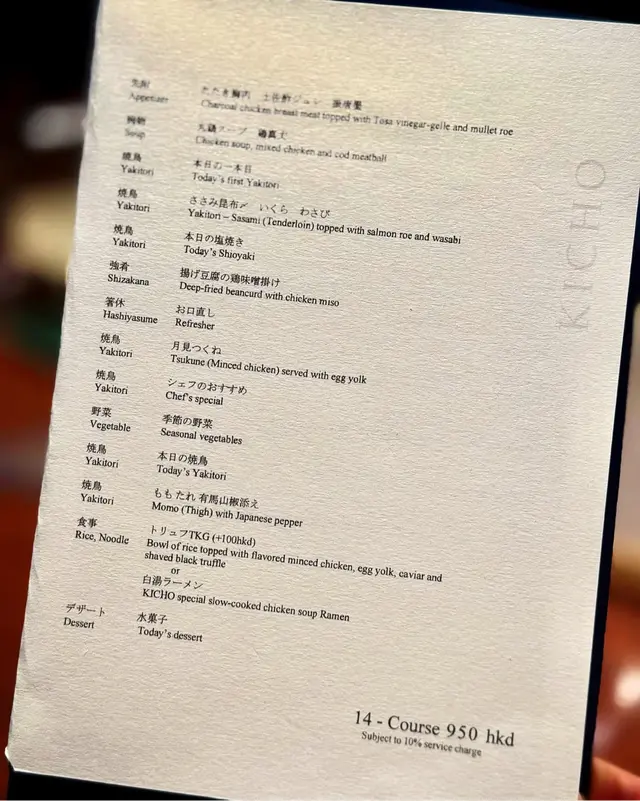 先附 たたき胸肉 土佐酢ジュレ 唐墨
Appetizer Charcoal chicken breast meat topped with Tosa vinegar-gelle and mullet roe
丸鶏スープ 鶏真丈
Soup Chicken soup, mixed chicken and cod meatball
焼鳥 本日の一本目
Yakitori Today's first Yakitori
焼鳥 ささみ昆布〆 いくら わさび
Yakitori Yakitori – Sasami (Tenderloin) topped with salmon roe and wasabi
焼鳥 本日の塩焼き
Yakitori Today's Shioyaki
強肴 揚げ豆腐の鶏味噌掛け
Shizakana Deep-fried beancurd with chicken miso
箸休 お口直し
Hashiyasume Refresher
焼鳥 月見つくね
Yakitori Tsukune (Minced chicken) served with egg yolk
焼鳥 シェフのおすすめ
Yakitori Chef's special
野菜 季節の野菜
Vegetable Seasonal vegetables
焼鳥 本日の焼鳥
Yakitori Today's Yakitori
焼鳥 もも たれ 有馬山椒添え
Yakitori Momo (Thigh) with Japanese pepper
食事 トリュフTKG (+100hkd)
Rice, Noodle Bowl of rice topped with flavored minced chicken, egg yolk, caviar and
shaved black truffle
or
白湯ラーメン
KICHO special slow-cooked chicken soup Ramen
デザート 水菓子
Dessert Today's dessert
14 - Course 950 hkd
Subject to 10% service charge
KICHO